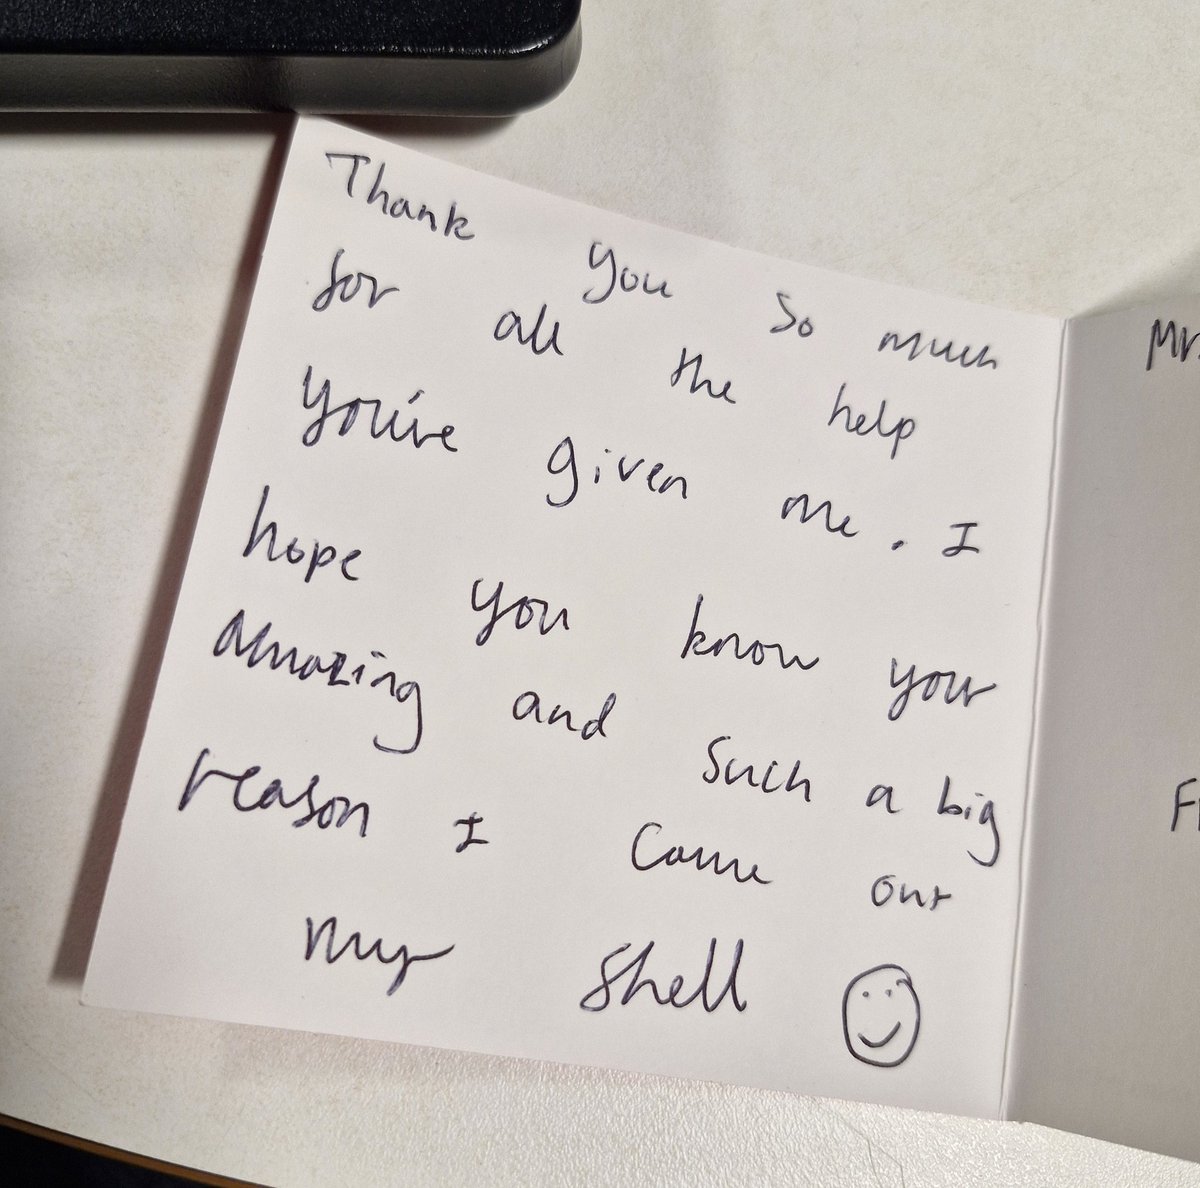 Thank you so much
for all the help
you've given me. I
hope you know your
amazing and such a big
reason I came out
my shell